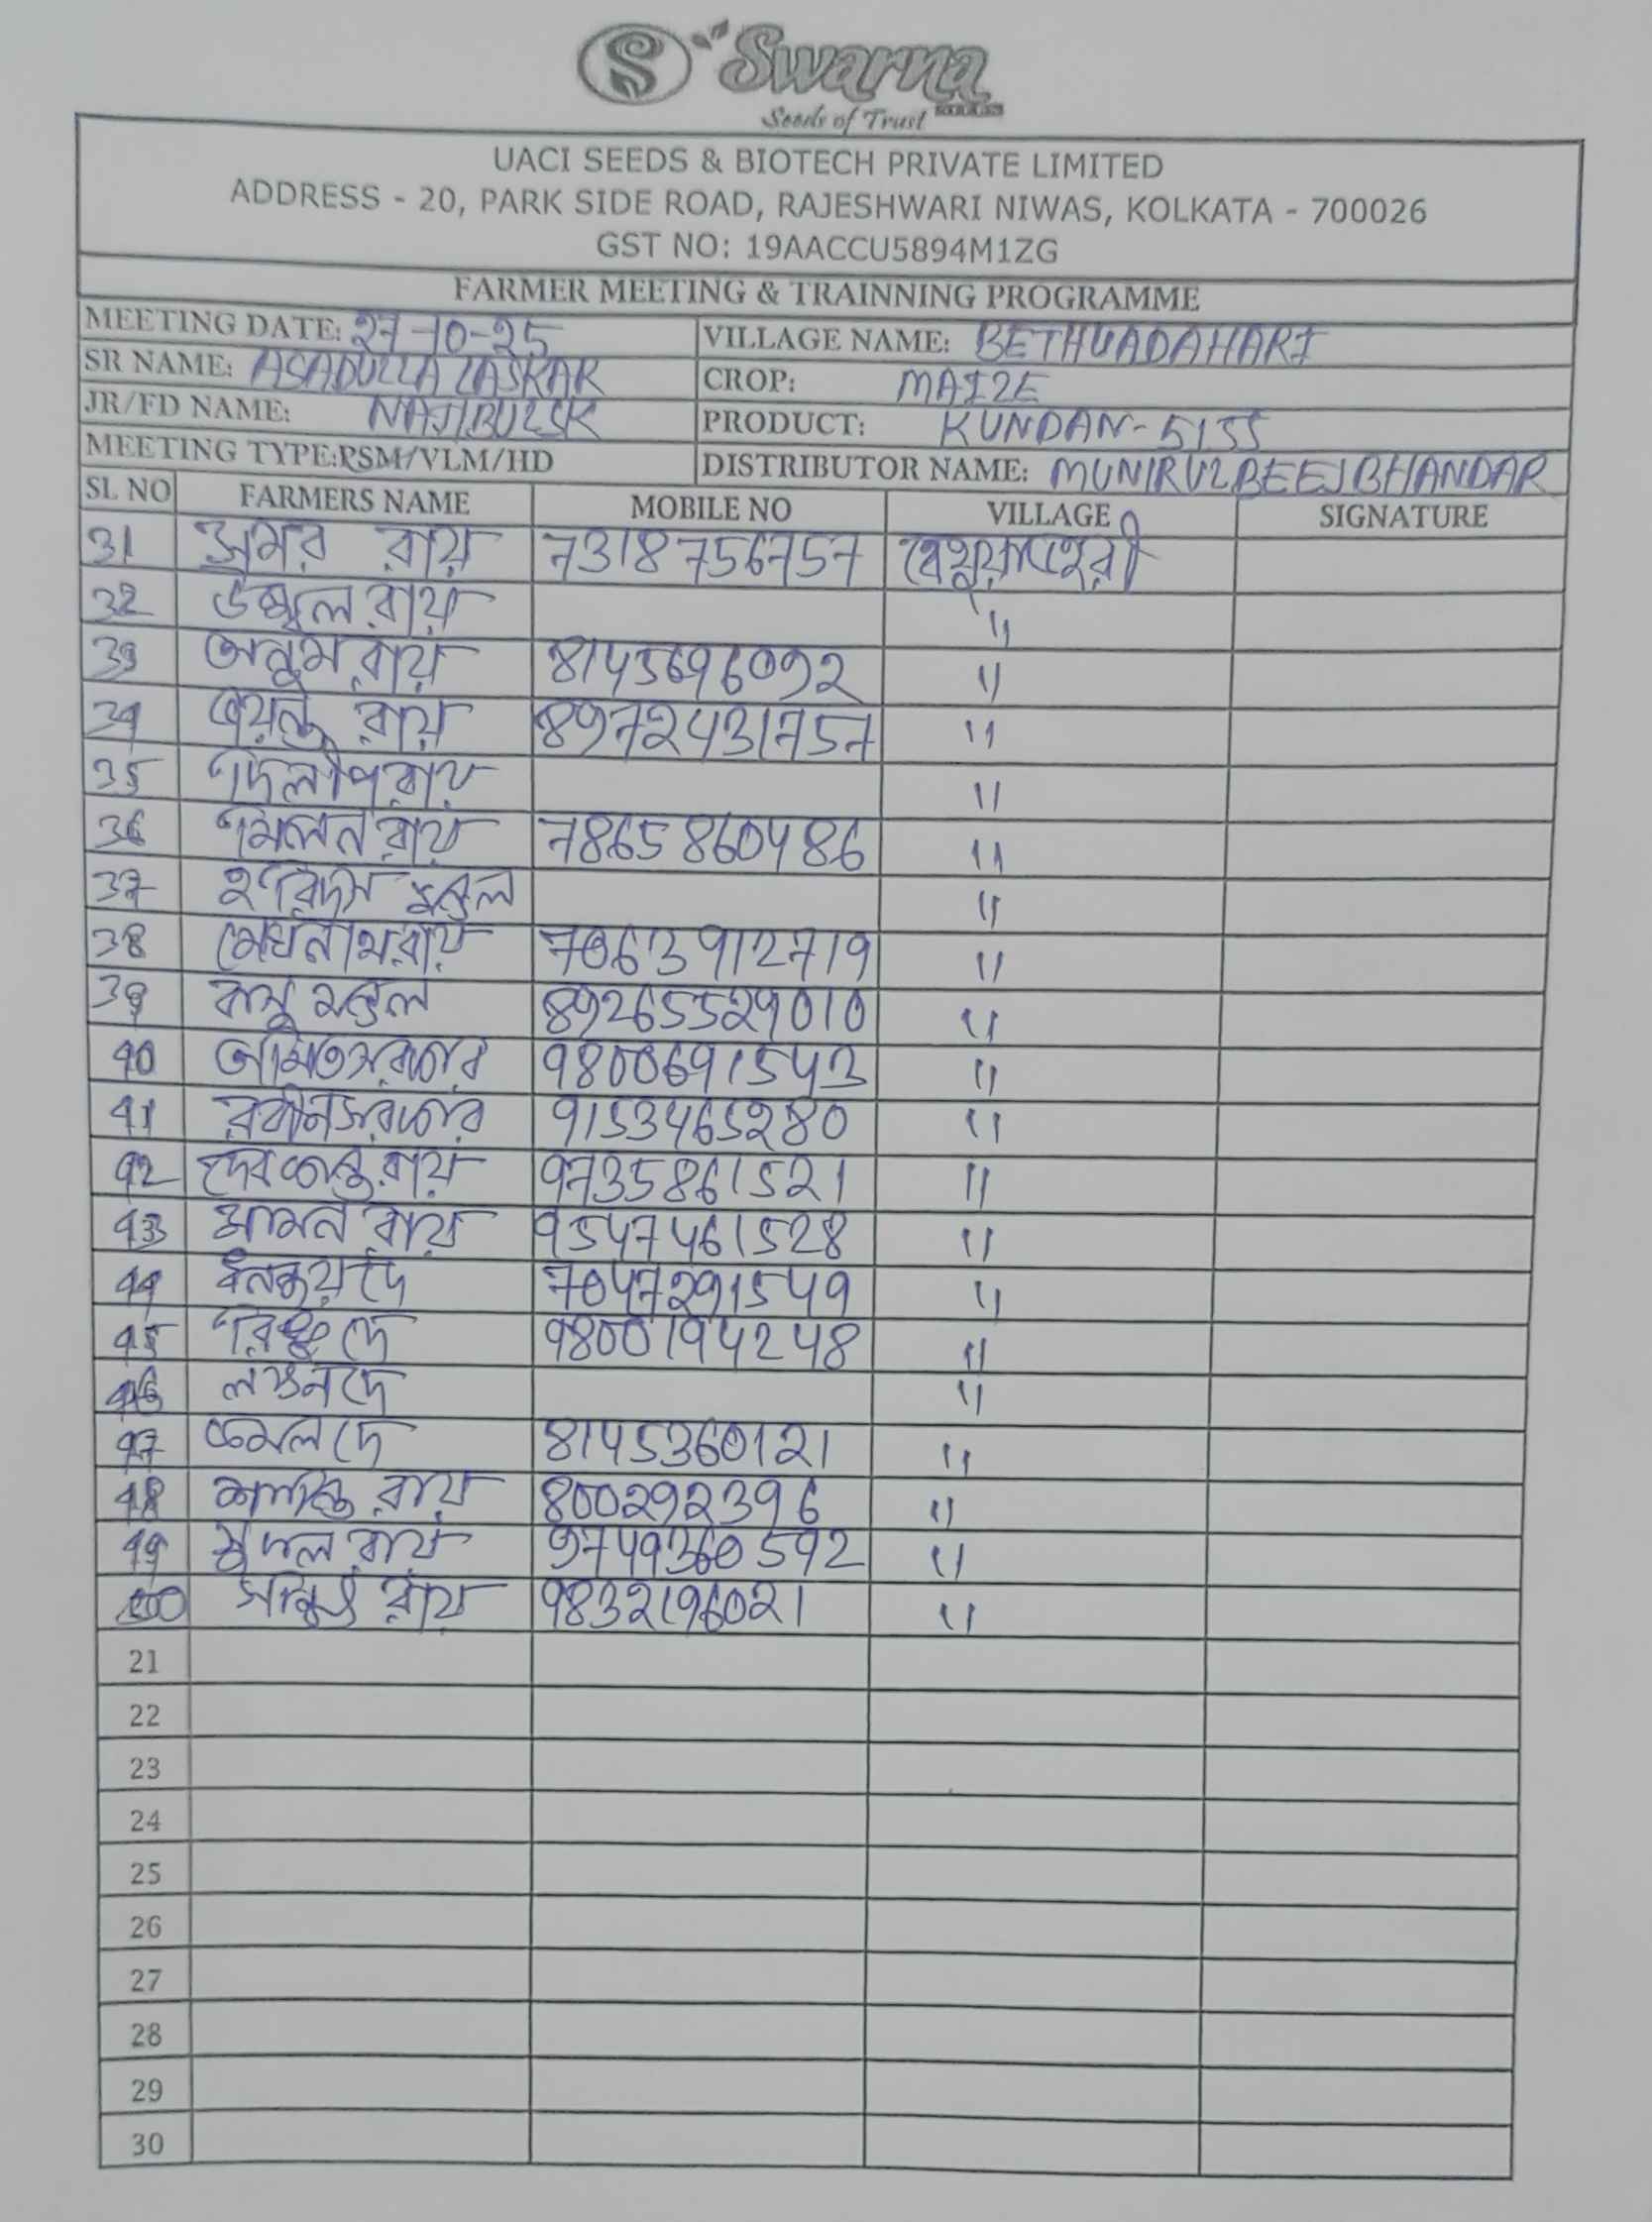 Swarna
Seeds of Trust
UACI SEEDS & BIOTECH PRIVATE LIMITED
ADDRESS - 20, PARK SIDE ROAD, RAJESHWARI NIWAS, KOLKATA - 700026
GST NO: 19AACCU5894M1ZG
FARMER MEETING & TRAINNING PROGRAMME
MEETING DATE: 27-10-25 VILLAGE NAME: BETHUADAHARI
SR NAME: ASADULLA LASKAR CROP: MAIZE
JR/FD NAME: NAJIBUL SK PRODUCT: KUNDAN-5155
MEETING TYPE:PSM/VLM/HD DISTRIBUTOR NAME: MUNIRUL BEEJ BHANDAR
SL NO FARMERS NAME MOBILE NO VILLAGE SIGNATURE
31 অমর রায় 7318756757
32 উজ্জ্বল রায় "
33 রায় 8145696092 "
34 জয়ন্ত রায় 8972431757 "
35 দিলীপ রায় "
36 মিলন রায় 7865860486 "
37 হরিদাস মণ্ডল "
38 রায় 7063912719 "
39 বাসু মণ্ডল 89265529010 "
40 অমিত সরকার 9800691543 "
41 রবীন সরকার 9153465280 "
42 দেবকান্ত রায় 9735861521 "
43 রায় 9547461528 "
44 ধনঞ্জয় দে 7047291549 "
45 দে 9800194248 "
46 দে "
47 কমল দে 8145360121 "
48 রায় 800292396 "
49 রায় 9749360592 "
রায় 9832196021 "
21
22
23
24
25
26
27
28
29
30